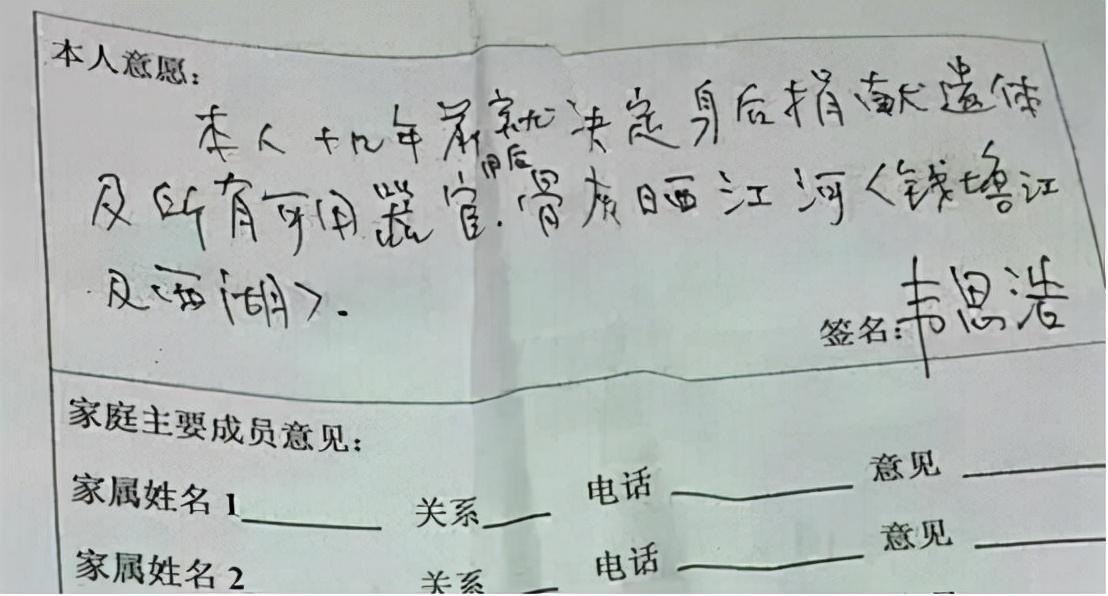 本人意愿:
本人十九年前就决定身后捐献遗体
及所有可用器官.用后骨灰晒江河<钱塘江
及西湖>.
签名:韦思浩
家庭主要成员意见:
家属姓名1 关系 电话 意见
家属姓名2 关系 电话 意见